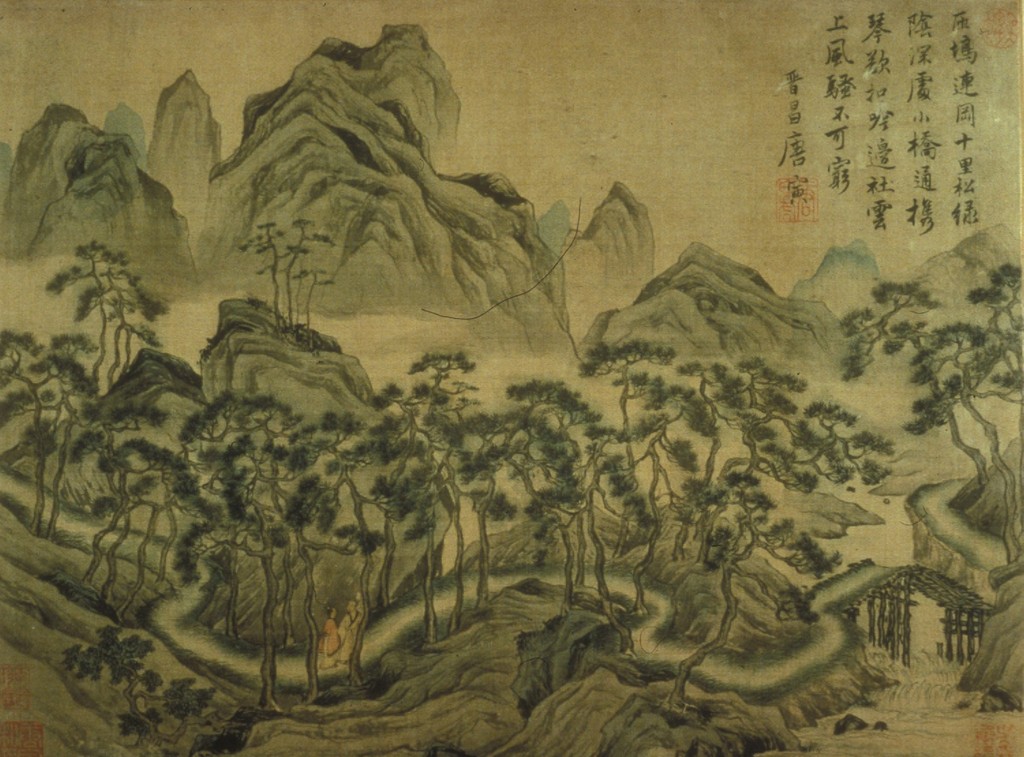 塢連岡十里松綠
陰深處小橋通攜
琴欲扣邊社雲
上風騷不可窮
晉昌唐寅